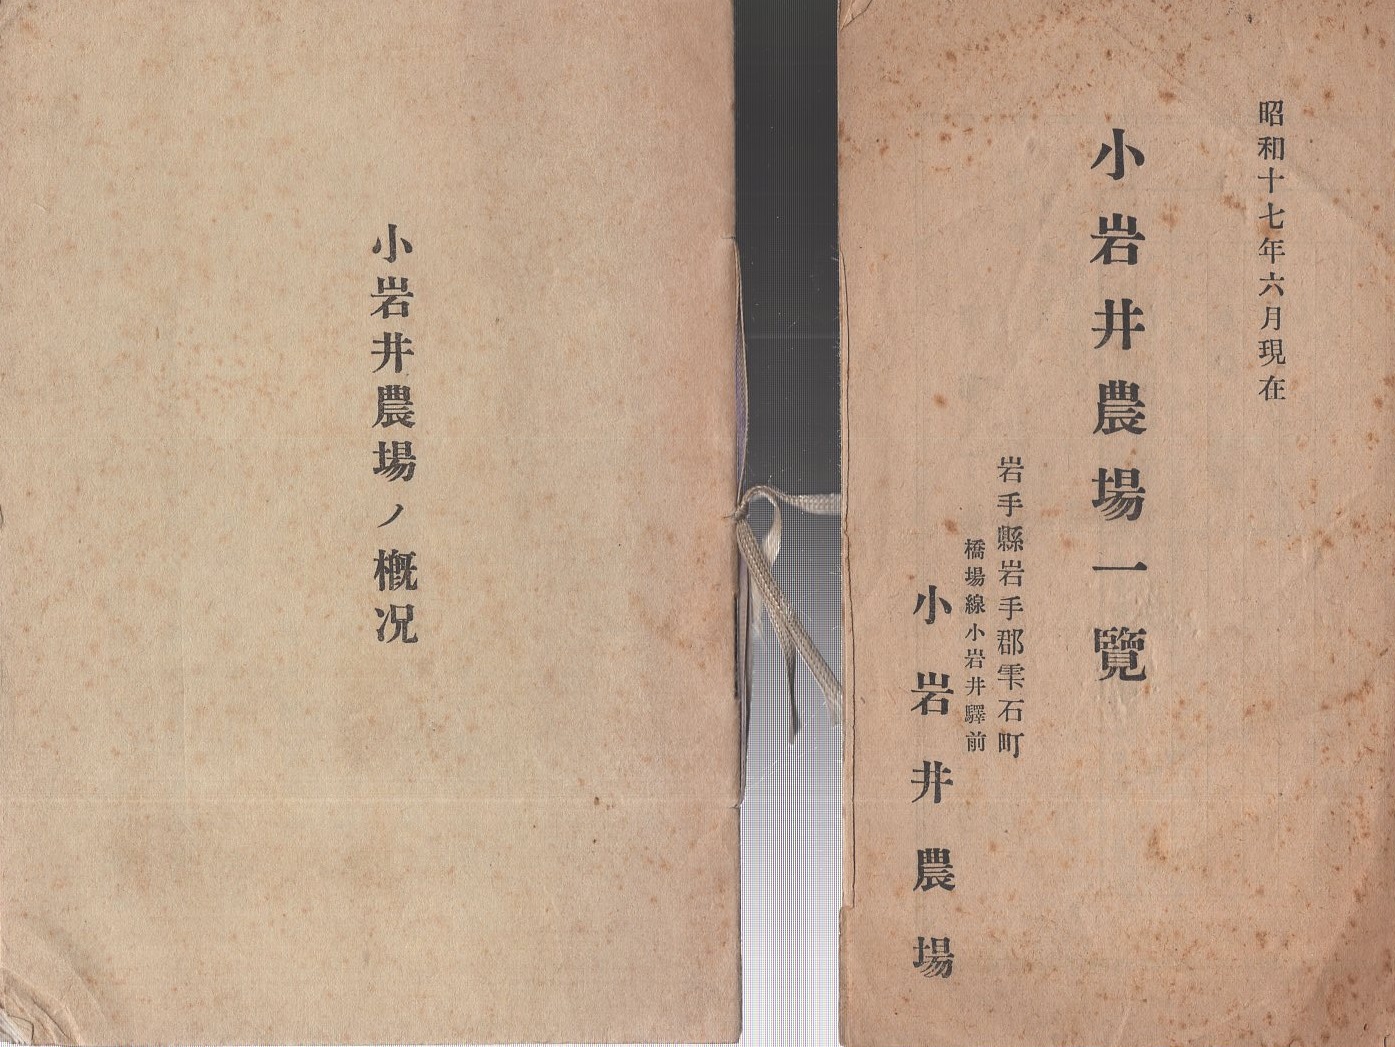 昭和十七年六月現在
小岩井農場一覽
岩手縣岩手郡雫石町
橋場線小岩井驛前
小岩井農場
小岩井農場ノ概況